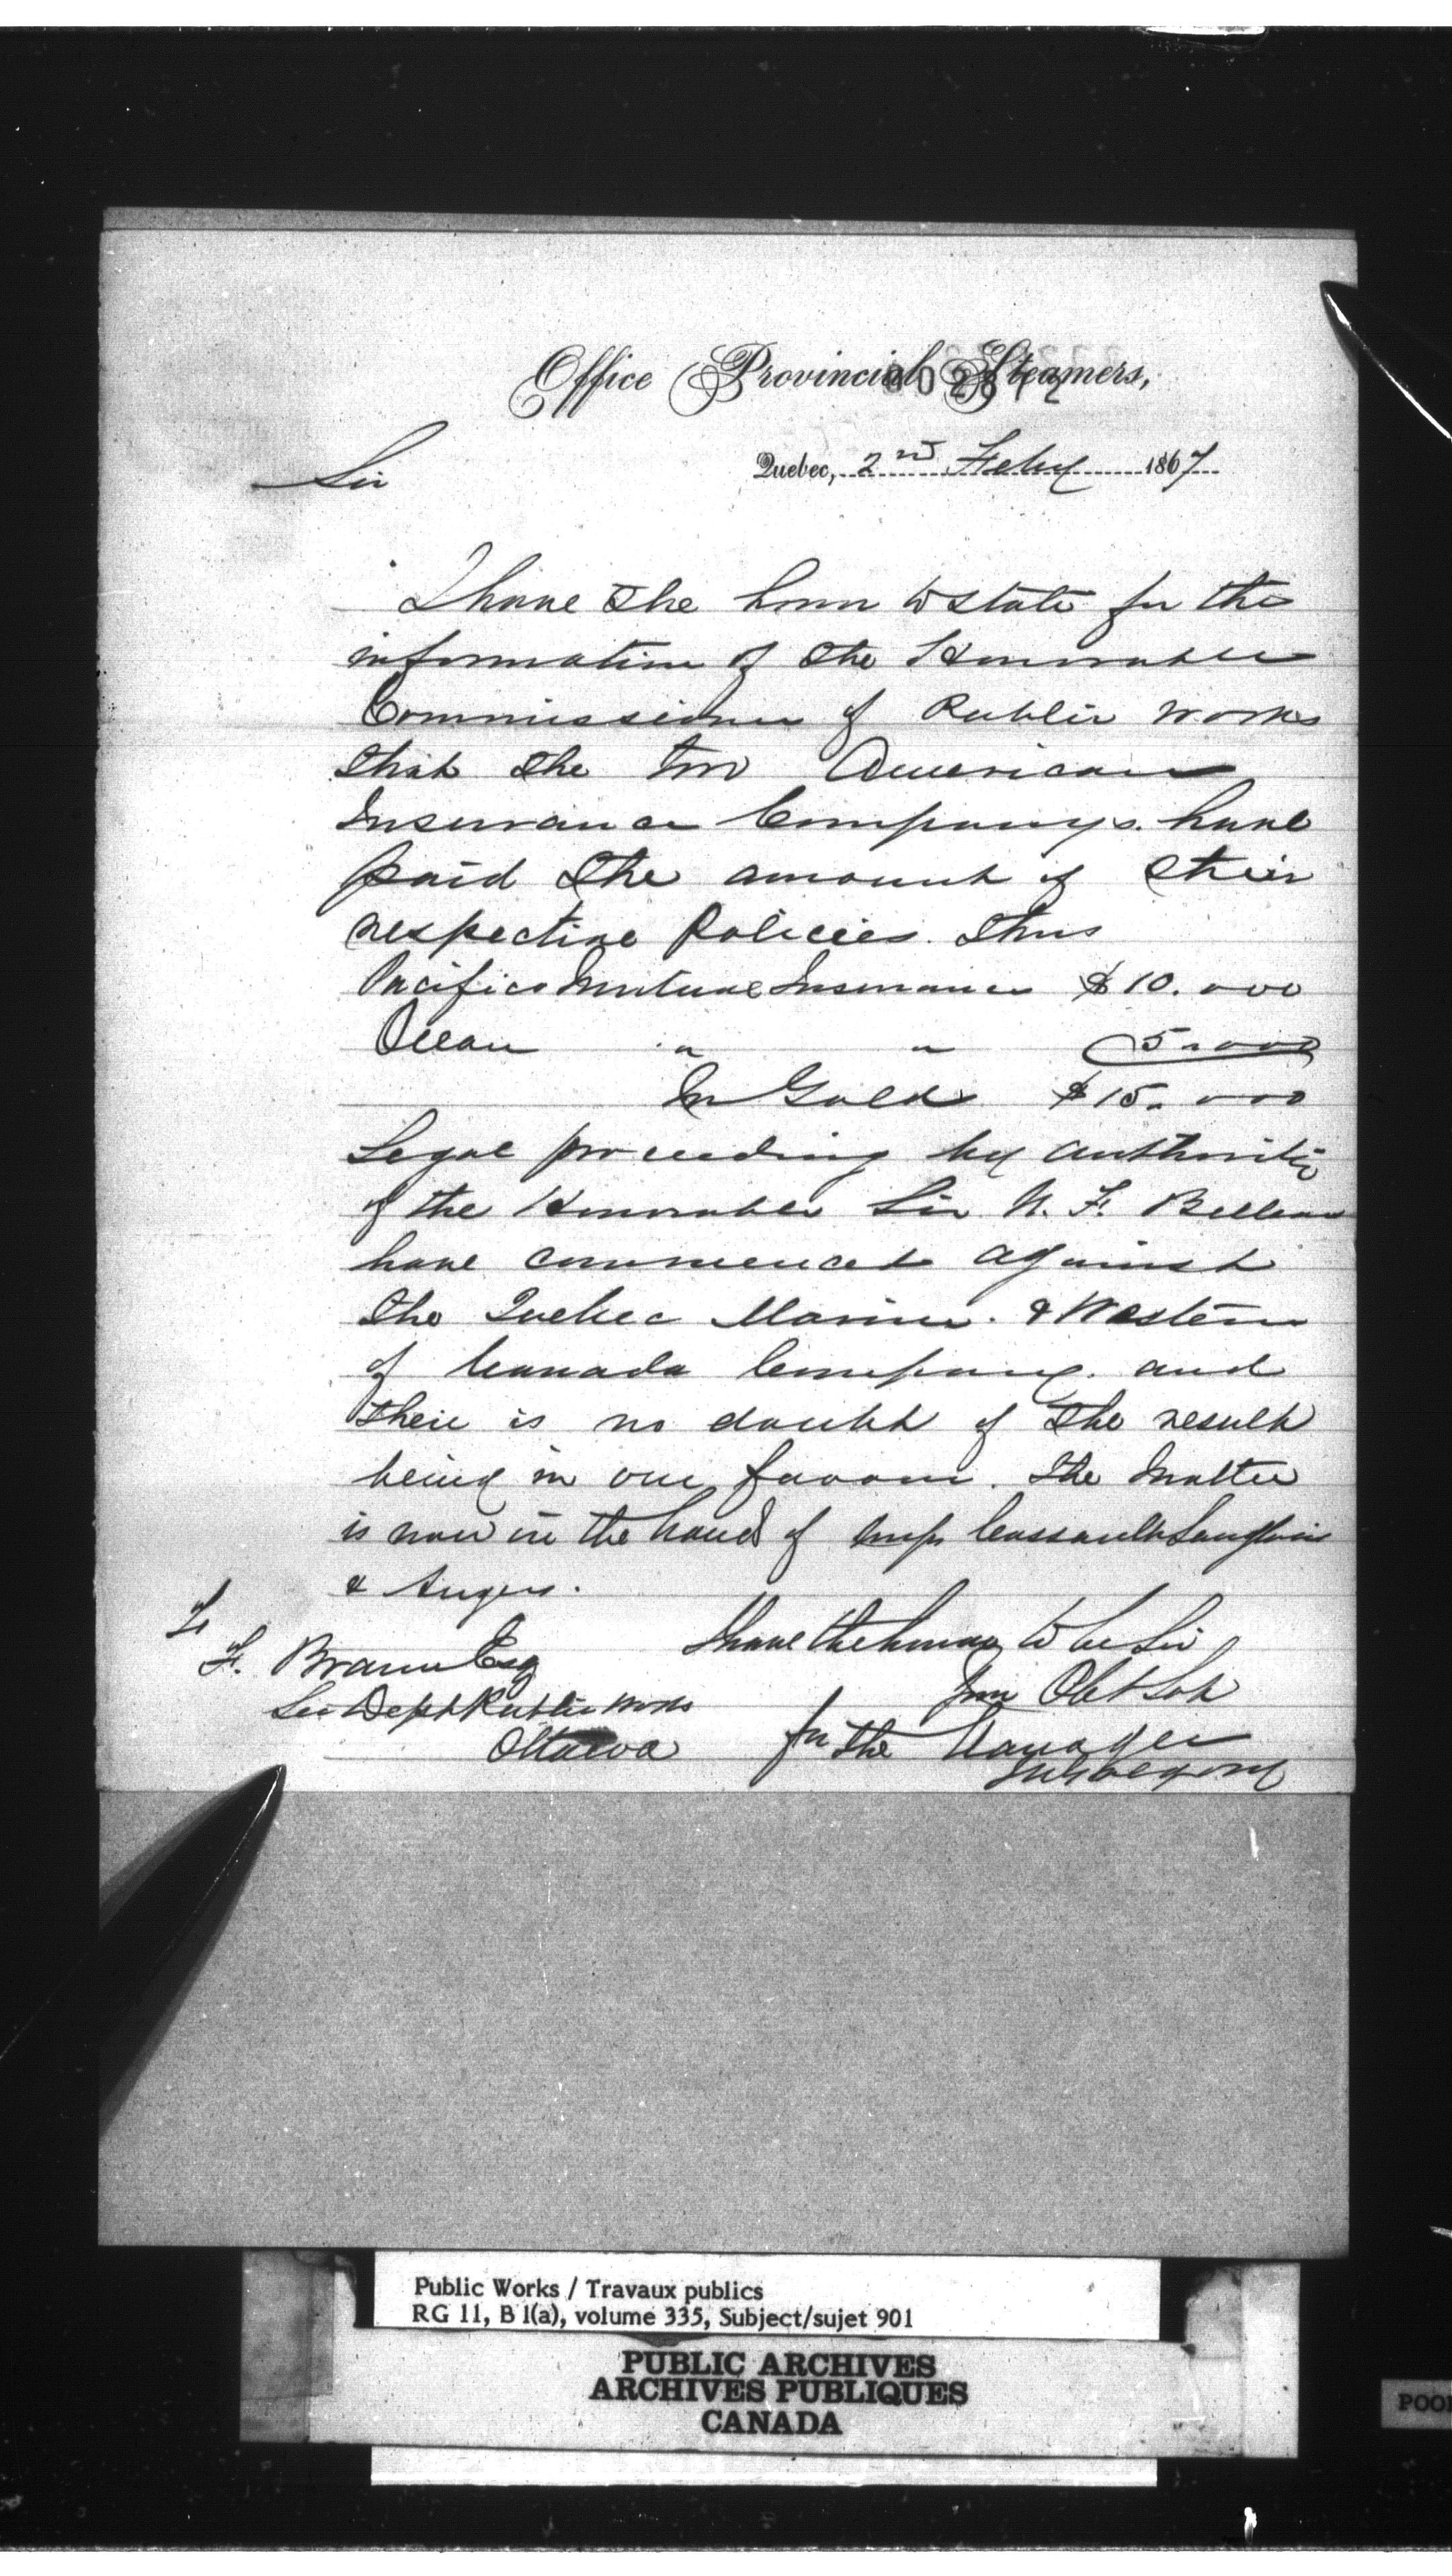 Office Provincial Steamers,
Quebec, 2nd Feby 1867
Sir
I have the honor to state for the
information of the Honorable
Commissioner of Public Works
that the two American
Insurance Companys. have
paid the amount of their
respective Policies. Thus
Pacific Mutual Insurance $10.000
Ocean " " 5.000
In Gold $15.000
Legal proceeding by authority
of the Honorable Sir N. F. Belleau
have commenced against
the Quebec Marine. & Western
of Canada Company. and
their is no doubt of the result
being in our favour. The matter
is now in the hands of Cassault Langlois
& Angers.
I have the honor to be Sir
Your Obt Sert
for the Manager
To
F. Braun Esq
Sec Dept Public Works
Ottawa
Public Works / Travaux publics
RG 11, B 1(a), volume 335, Subject/sujet 901
PUBLIC ARCHIVES
ARCHIVES PUBLIQUES
CANADA